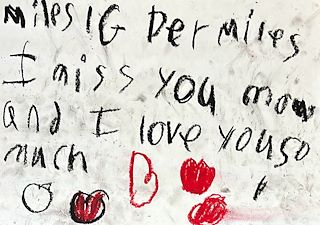 miles IG Der Miles
I miss you mow
and I love you so
much